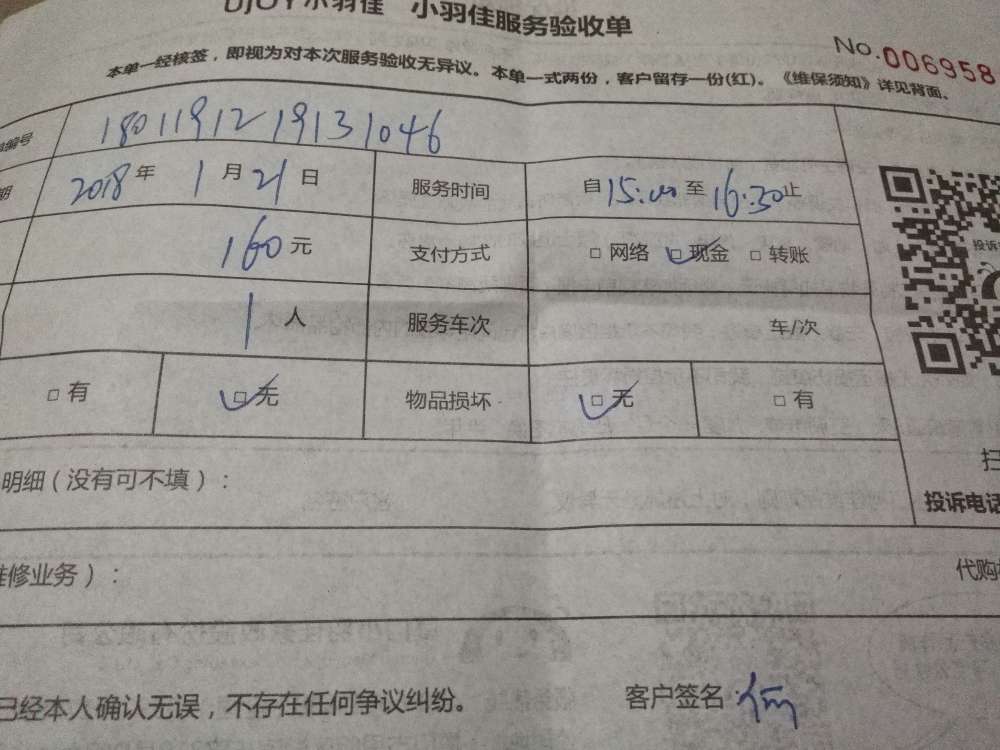 小羽佳 小羽佳服务验收单
No.006958
本单一经核签，即视为对本次服务验收无异议。本单一式两份，客户留存一份(红)。《维保须知》详见背面。
编号 1801191219131046
期 2018年 1月 21日 服务时间 自15:00至16:30止
160元 支付方式 □ 网络 □ 现金 □ 转账
投诉
1人 服务车次 车/次
□ 有 □ 无 物品损坏 □ 无 □ 有
明细（没有可不填）：
扫
投诉电话
维修业务）：
代购
已经本人确认无误，不存在任何争议纠纷。 客户签名